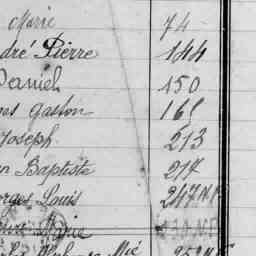 Marie 74
dré Pierre 144
Daniel 150
Gaston 165
Joseph 213
n Baptiste 217
orges Louis 247
Marie